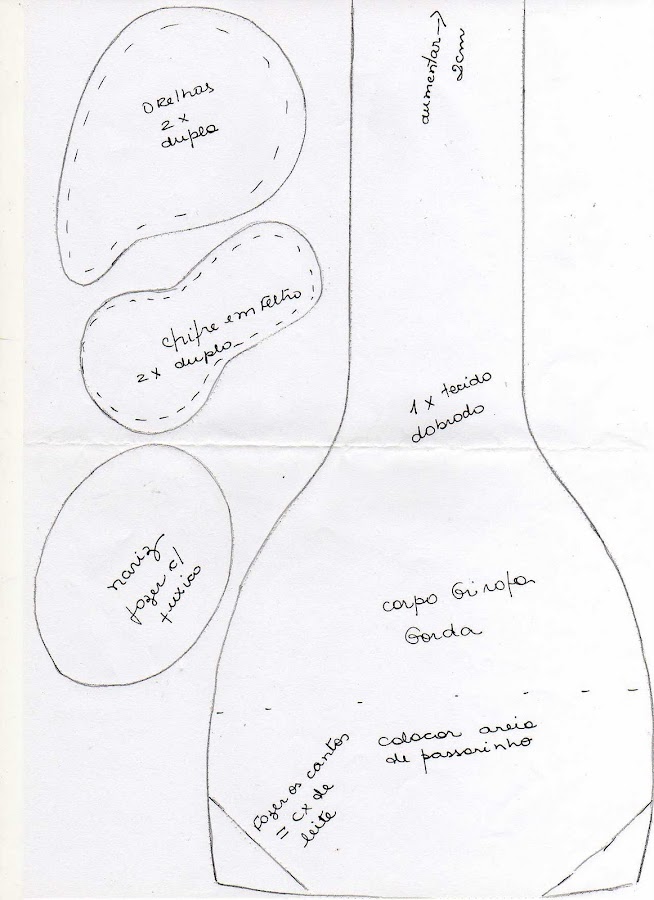 aumentar →
2cm
Orelhas
2 x
duplo
chifre em feltro
2 x duplo
1 x tecido
dobrado
nariz
fazer c/
fuxico
corpo Girafa
Gorda
colocar areia
de passarinho
Fazer os cantos
= cx de
leite